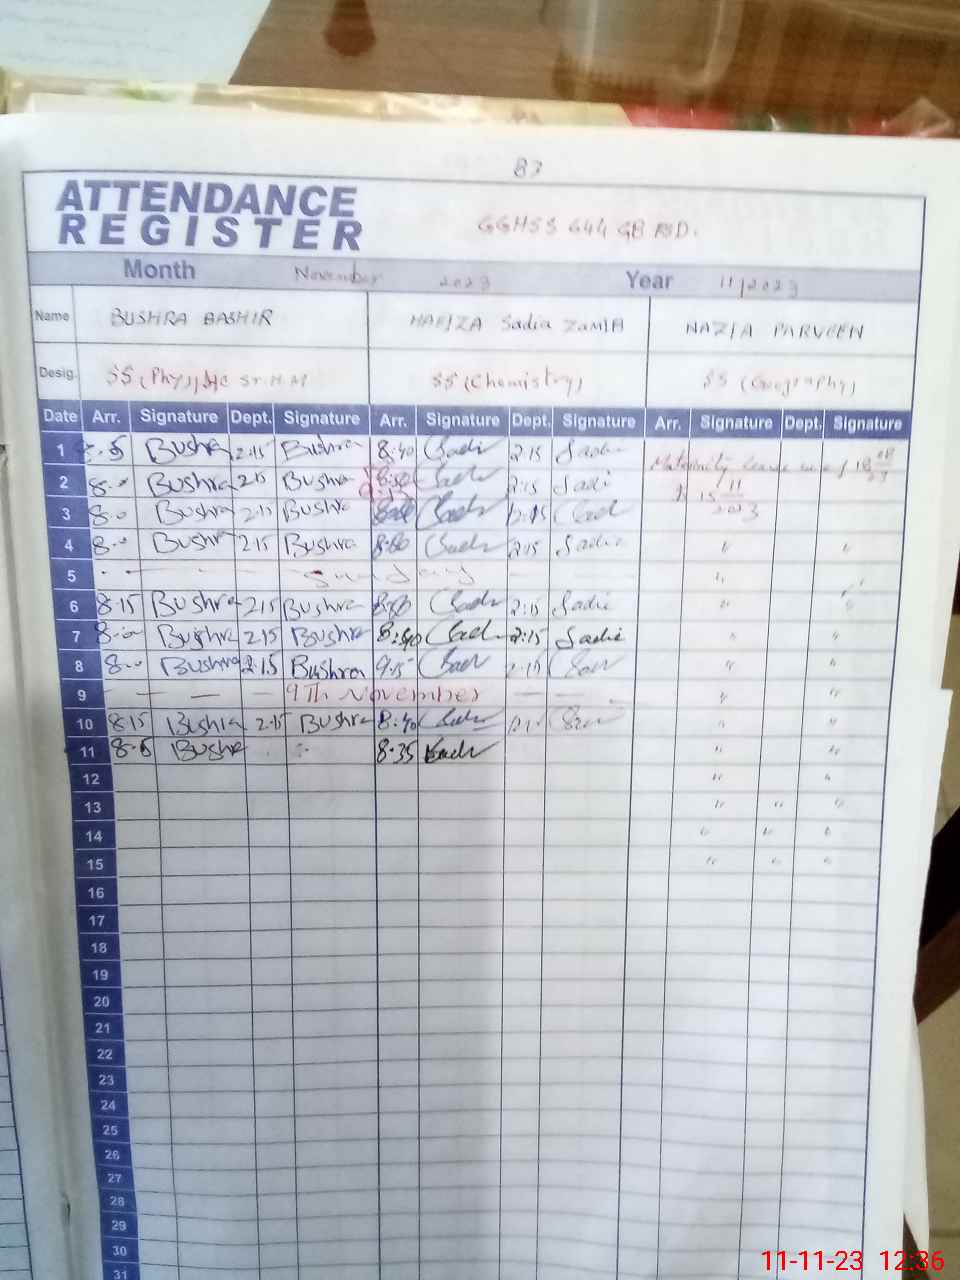 87
ATTENDANCE
REGISTER
GGHSS 644 GB FSD.
Month November 2023 Year 11/2023
Name BUSHRA BASHIR HAFIZA Sadia Zamir NAZIA PARVEEN
Desig. SS (Phy) I/C Sr. H.M SS (Chemistry) SS (Geography)
Date Arr. Signature Dept. Signature Arr. Signature Dept. Signature Arr. Signature Dept. Signature
1 Bushra 2:15 Bushra 8:40 Sadi 2:15 Sadia Maternity leave
2 8:00 Bushra 2:15 Bushra 2:15 Sadi 15 11 2023
3 8:00 Bushra 2:15 Bushra 2:15
4 8:00 Bushra 2:15 Bushra 2:15 Sadia " "
5 Sunday "
6 8:15 Bushra 2:15 Bushra 2:15 Sadie "
7 8:00 Bushra 2:15 Bushra 8:40 2:15 Sadie " "
8 8:00 Bushra 2:15 Bushra 9:15 2:15 " "
9 — — — 9Th November — — " "
10 8:15 Bushra 2:15 Bushra 8:40 " "
11 Bushra 8:35 " "
12 " "
13 " " "
14 " " "
15 " " "
16
17
18
19
20
21
22
23
24
25
26
27
28
29
30
31
11-11-23 12:36